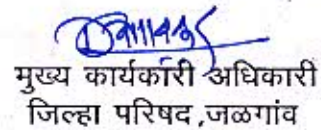 मुख्य कार्यकारी अधिकारी
जिल्हा परिषद ,जळगांव